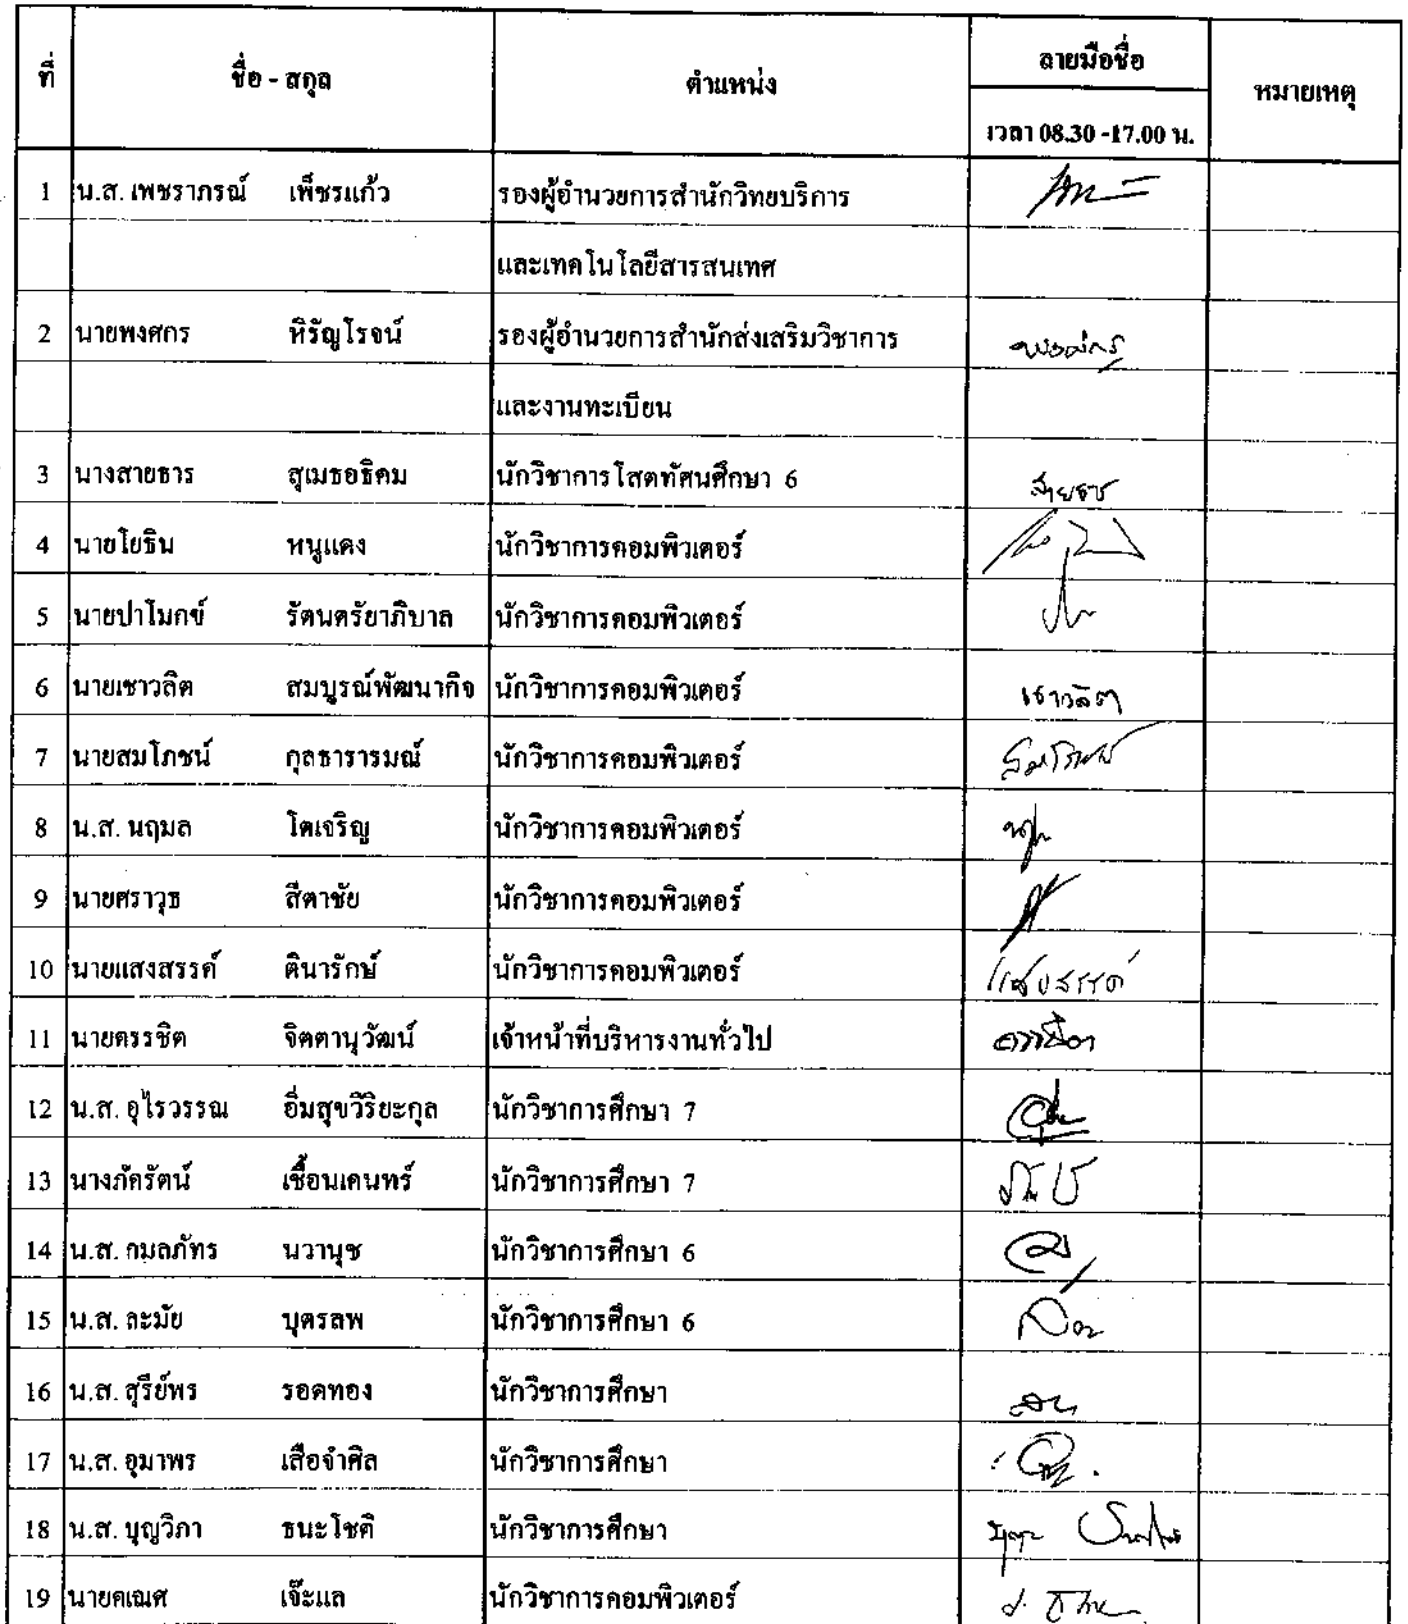 ที่ ชื่อ - สกุล ตำแหน่ง ลายมือชื่อ หมายเหตุ
เวลา 08.30 -17.00 น.
1 น.ส. เพชราภรณ์ เพ็ชรแก้ว รองผู้อำนวยการสำนักวิทยบริการ
และเทคโนโลยีสารสนเทศ
2 นายพงศกร หิรัญโรจน์ รองผู้อำนวยการสำนักส่งเสริมวิชาการ พงศกร
และงานทะเบียน
3 นางสายธาร สุเมธอธิคม นักวิชาการโสตทัศนศึกษา 6 สายธาร
4 นายโยธิน หนูแดง นักวิชาการคอมพิวเตอร์
5 นายปาโมกข์ รัตนตรัยาภิบาล นักวิชาการคอมพิวเตอร์
6 นายเชาวลิต สมบูรณ์พัฒนากิจ นักวิชาการคอมพิวเตอร์ เชาวลิต
7 นายสมโภชน์ กุลธารารมณ์ นักวิชาการคอมพิวเตอร์ สมโภชน์
8 น.ส. นฤมล โตเจริญ นักวิชาการคอมพิวเตอร์
9 นายศราวุธ สีตาชัย นักวิชาการคอมพิวเตอร์
10 นายแสงสรรค์ ตินารักษ์ นักวิชาการคอมพิวเตอร์ แสงสรรค์
11 นายดรรชิต จิตตานุวัฒน์ เจ้าหน้าที่บริหารงานทั่วไป ดรรชิต
12 น.ส. อุไรวรรณ อิ่มสุขวิริยะกุล นักวิชาการศึกษา 7
13 นางภัครัตน์ เชื้อนเคนทร์ นักวิชาการศึกษา 7
14 น.ส. กมลภัทร นวานุช นักวิชาการศึกษา 6
15 น.ส. ละมัย บุตรลพ นักวิชาการศึกษา 6
16 น.ส. สุรีย์พร รอดทอง นักวิชาการศึกษา
17 น.ส. อุมาพร เสือจำศิล นักวิชาการศึกษา
18 น.ส. บุญวิภา ธนะโชติ นักวิชาการศึกษา
19 นายคเณศ เจ๊ะแล นักวิชาการคอมพิวเตอร์